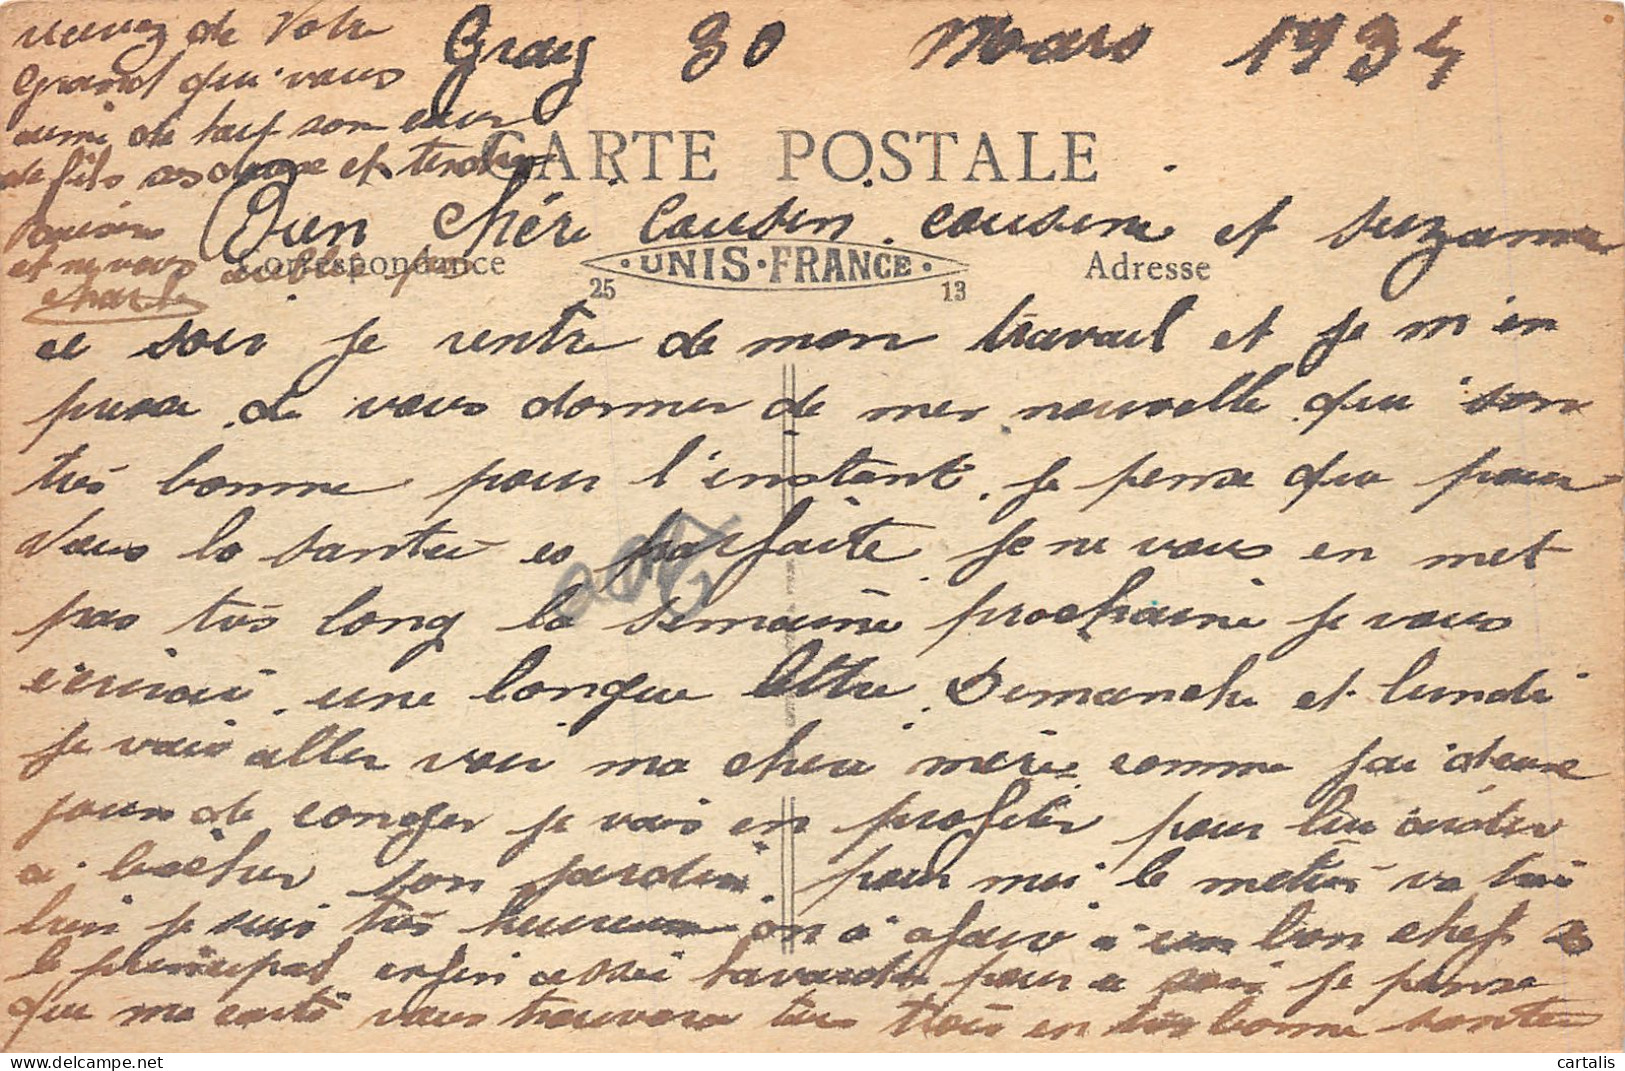 Gray 30 Mars 1934
CARTE POSTALE
Bien chéri Cousin. cousine et suzanne
Correspondance
UNIS-FRANCE
Adresse
25
13
ce soir je rentre de mon travail et je m'en
de vous donner de mes nouvelle qui son
très bonne pour l'instant. je pense que pour
vous la santée es parfaite. je ne vous en met
pas très long la semaine prochaine je vous
écrirais. une longue lettre. Dimanche et lundi
je vais aller voir ma cheri mère comme j'ai deux
jours de conger je vais en profiter pour lui aider
a bécher son jardin. pour moi le metier va très
bien je suis très heureux on à afaire à un bon chef
le principal enfin assez bavarder pour ce soir je pense
que ma carte vous trouvera tous trois en très bonne santée
recevez de Votre
Grand qui vous
aime de tout son cœur
de fils ses doux et tendre
baisers
et ne vous oublie pas
Charle